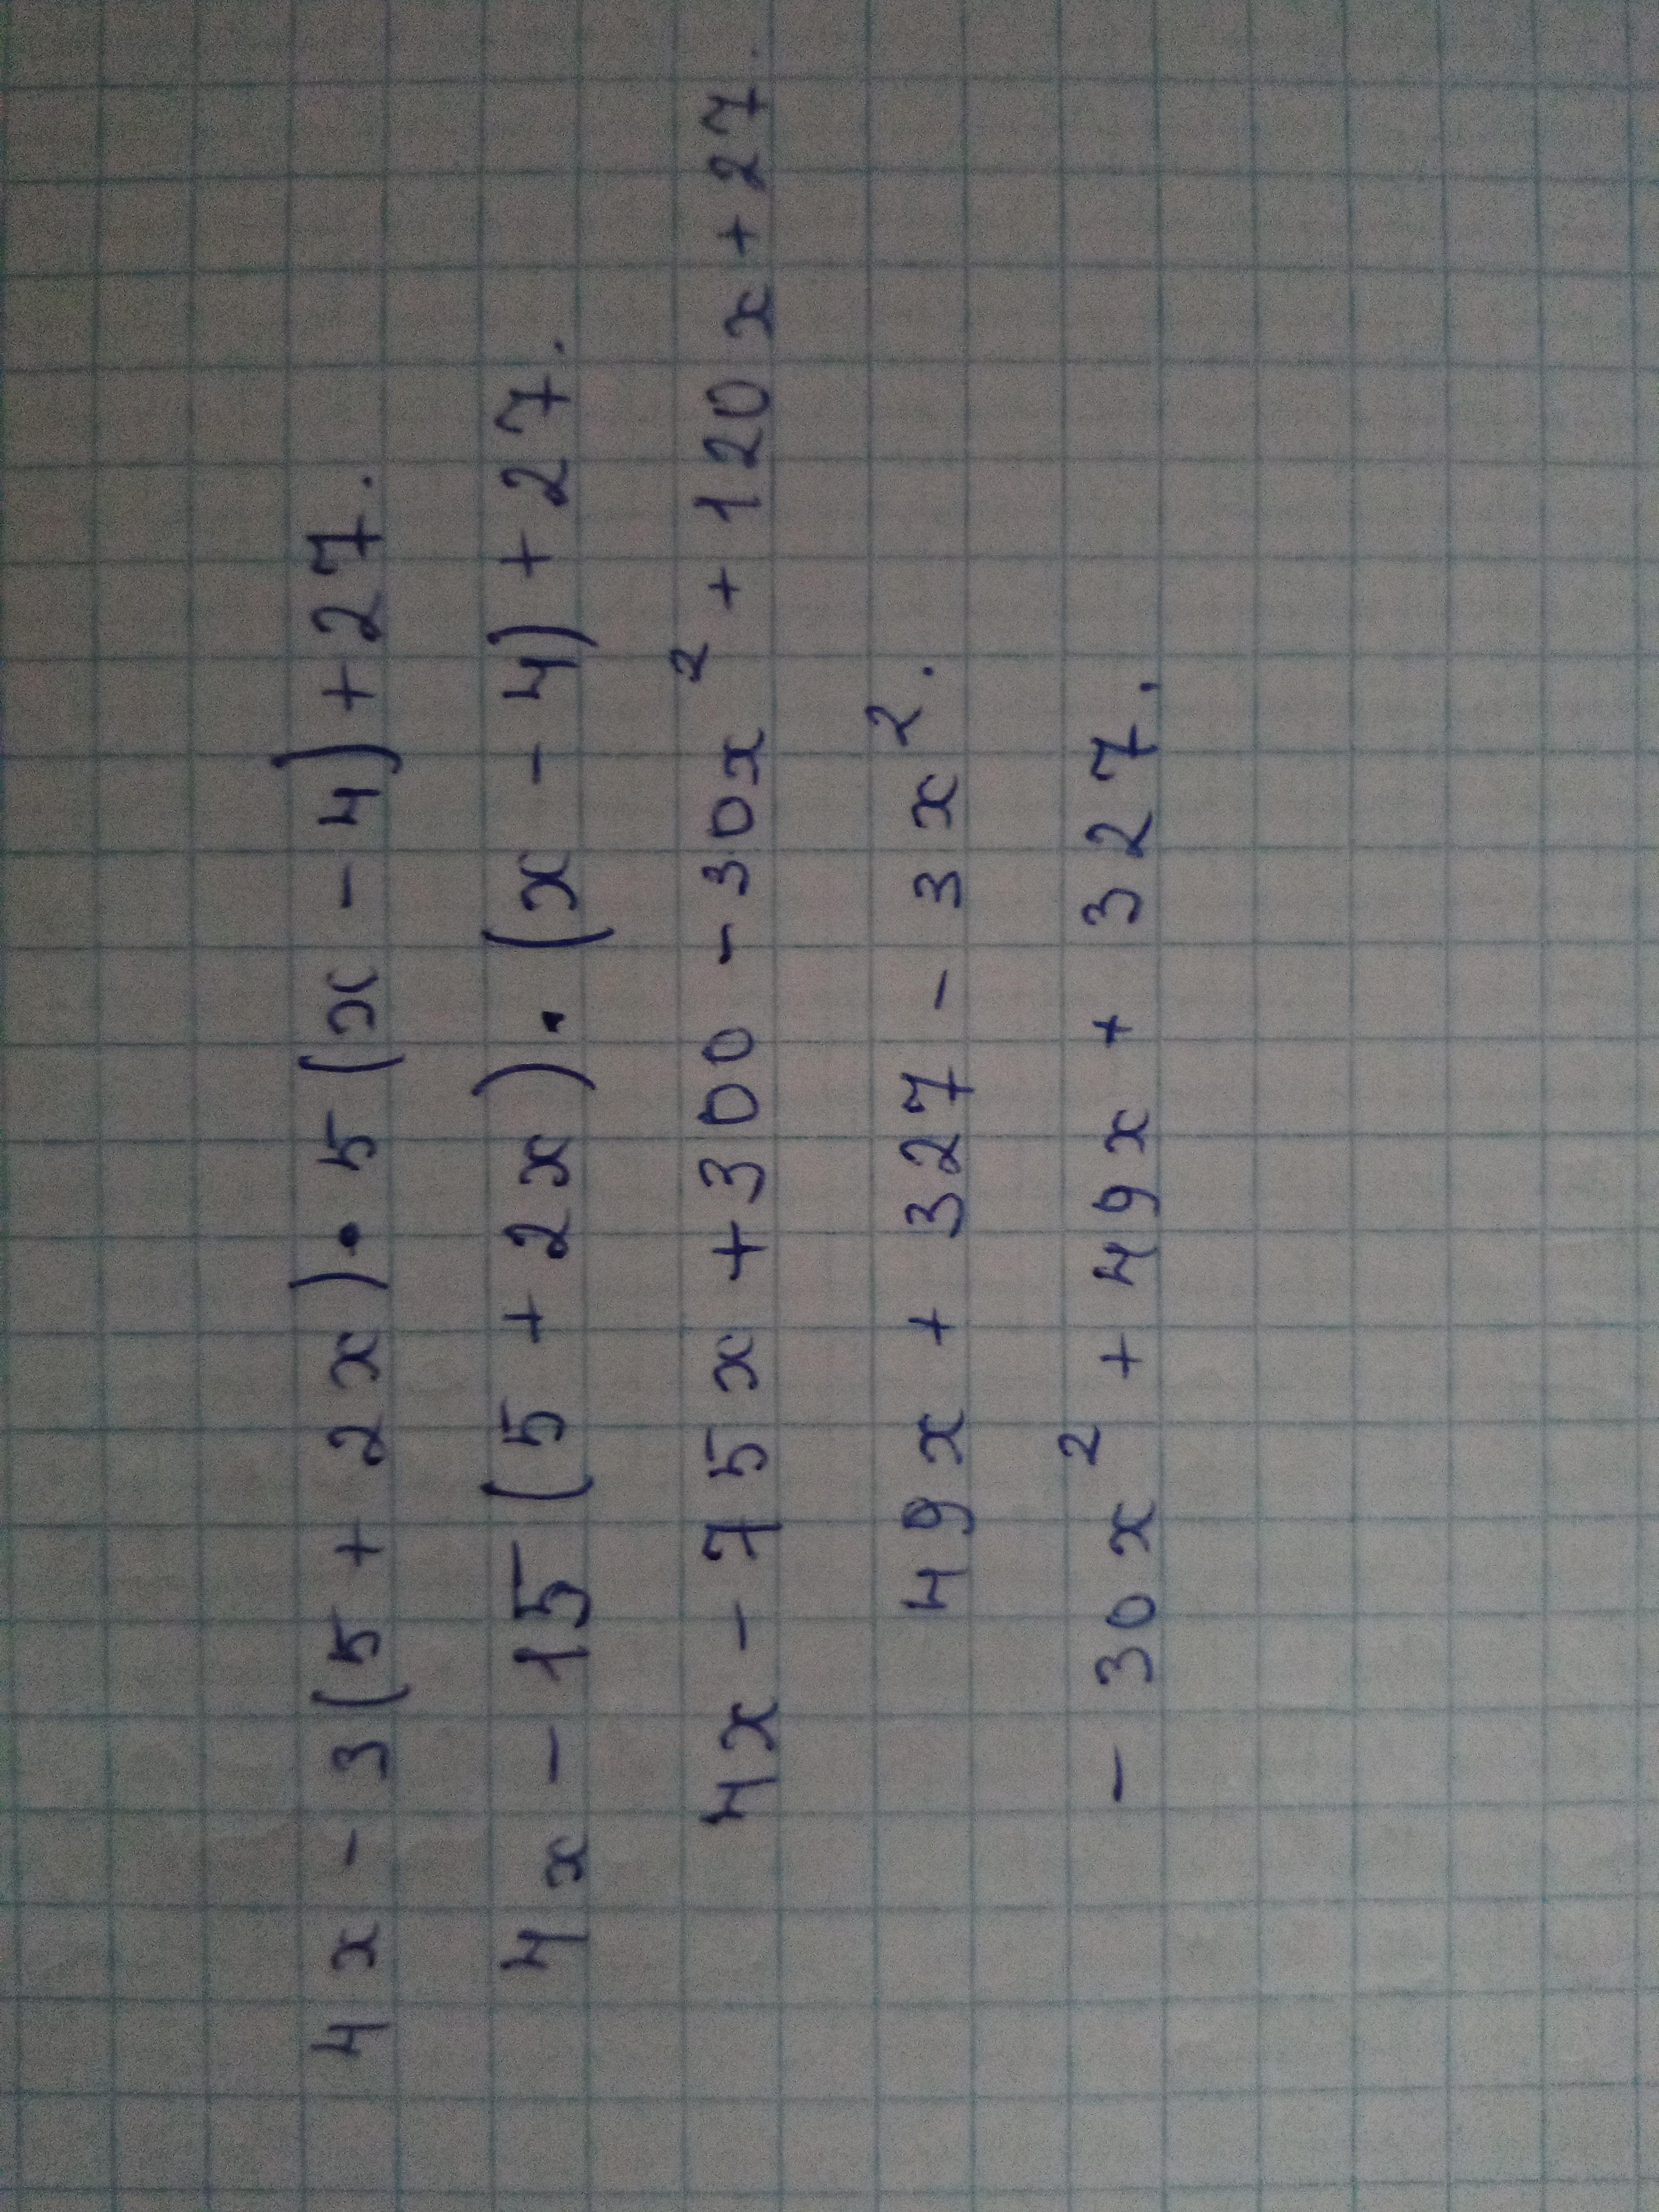 4x - 3(5 + 2x) · 5(x - 4) + 27.
4x - 15(5 + 2x) · (x - 4) + 27.
4x - 75x + 300 - 30x² + 120x + 27.
49x + 327 - 3x².
- 30x² + 49x + 327.